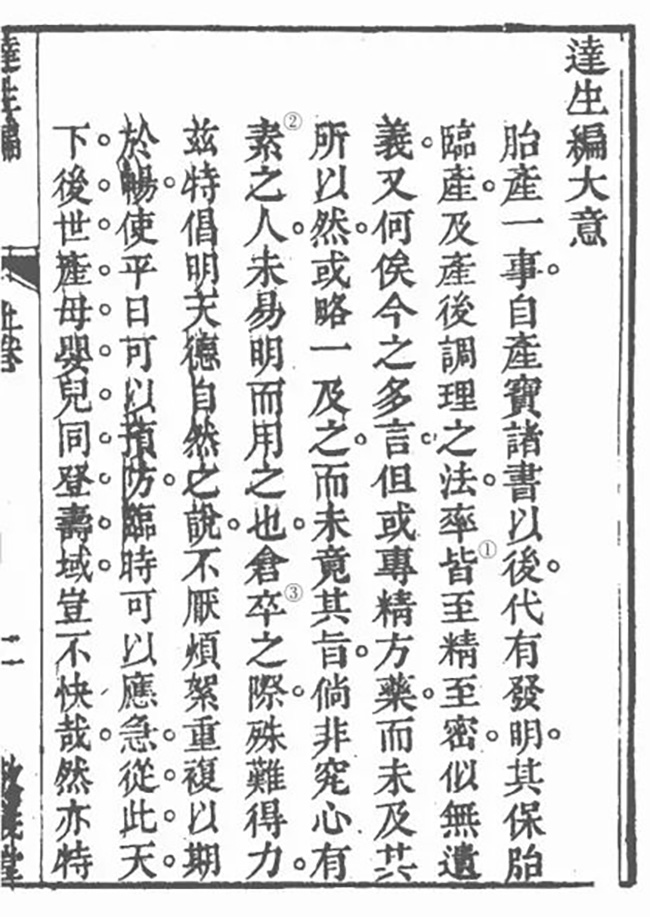 達生編大意
胎產一事。自產寶諸書以後。代有發明。其保胎
臨產。及產後調理之法。率皆①至精至密。似無遺
義。又何俟今之多言。但或專精方藥。而未及其
所以然。或略一及之。而未竟其旨。倘非究心有
素②之人。未易明而用之也。倉卒③之際。殊難得力。
玆特倡明天德自然之說。不厭煩絮重複。以期
於暢。使平日可以預防。臨時可以應急。從此天
下後世。產母嬰兒。同登壽域。豈不快哉。然亦特
達生編
上卷
二